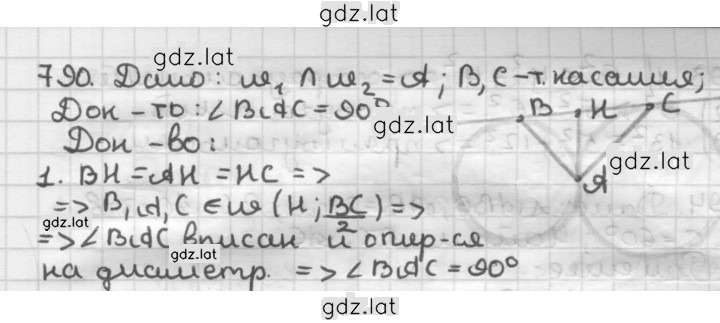 gdz.lat
gdz.lat
790. Дано: ω₁ ∩ ω₂ = A; B, C - т. касания;
Док-ть: ∠BAC = 90°
gdz.lat
B H C
Док-во:
gdz.lat
1. BH = AH = HC =>
A
=> B, A, C ∈ ω (H; BC/2) =>
gdz.lat
=> ∠BAC вписан и опир-ся
gdz.lat
на диаметр. => ∠BAC = 90°
gdz.lat